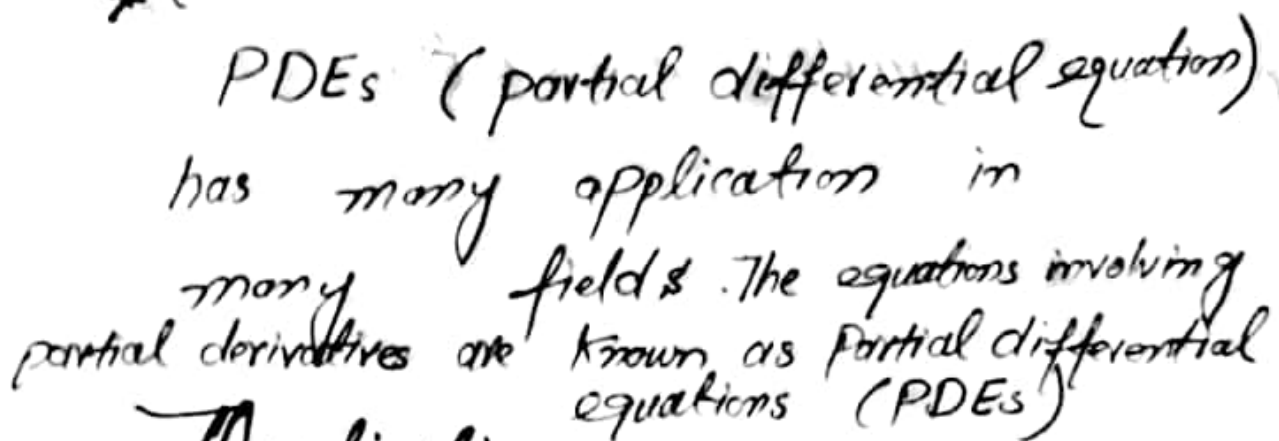 PDEs (partial differential equation)
has many application in
many fields. The equations involving
partial derivatives are known as Partial differential
equations (PDEs)